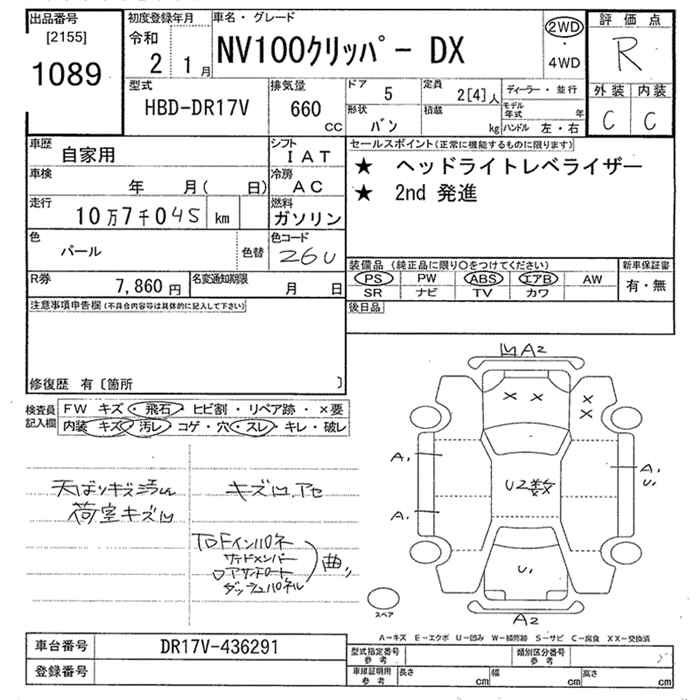 出品番号 初度登録年月 車名・グレード 評価点
[2155] 令和 2WD
1089 2 1月 NV100クリッパー DX ・ R
4WD
型式 排気量 ドア 5 定員 2[4]人 ディーラー・並行 外装 内装
HBD-DR17V 660 CC 形状 バン 積載 kg モデル年式 年 C C
ハンドル 左・右
車歴 自家用 シフト IAT セールスポイント(正常に機能するものに限ります)
車検 年 月( 日) 冷房 AC ★ ヘッドライトレベライザー
走行 10万7千045 km 燃料 ガソリン ★ 2nd 発進
色 パール 色替 色コード 26U
装備品 (純正品に限り○をつけてください) 新車保証書
R券 7,860円 名変通知期限 月 日 PS PW ABS エアB AW 有・無
SR ナビ TV カワ
注意事項申告欄(不具合内容等は具体的に記入して下さい) 後日品
修復歴 有〔箇所 〕
検査員 FW キズ・飛石・ヒビ割・リペア跡・×要
記入欄 内装 キズ・汚レ・コゲ・穴・スレ・キレ・破レ
天ばりキズ汚れ キズ凹.アセ
荷室キズ凹
インパネ
サイドメンバー 曲
ダッシュパネル
凹A2
× × × ×
A1 U2数 A1
U1
A1
U1
スペア A2
A-キズ E-エクボ U-凹み W-補修跡 S-サビ C-腐食 XX-交換済
車台番号 DR17V-436291 型式指定番号 参考 類別区分番号 参考
登録番号 車庫証明用 参考 長さ cm 幅 cm 高さ cm